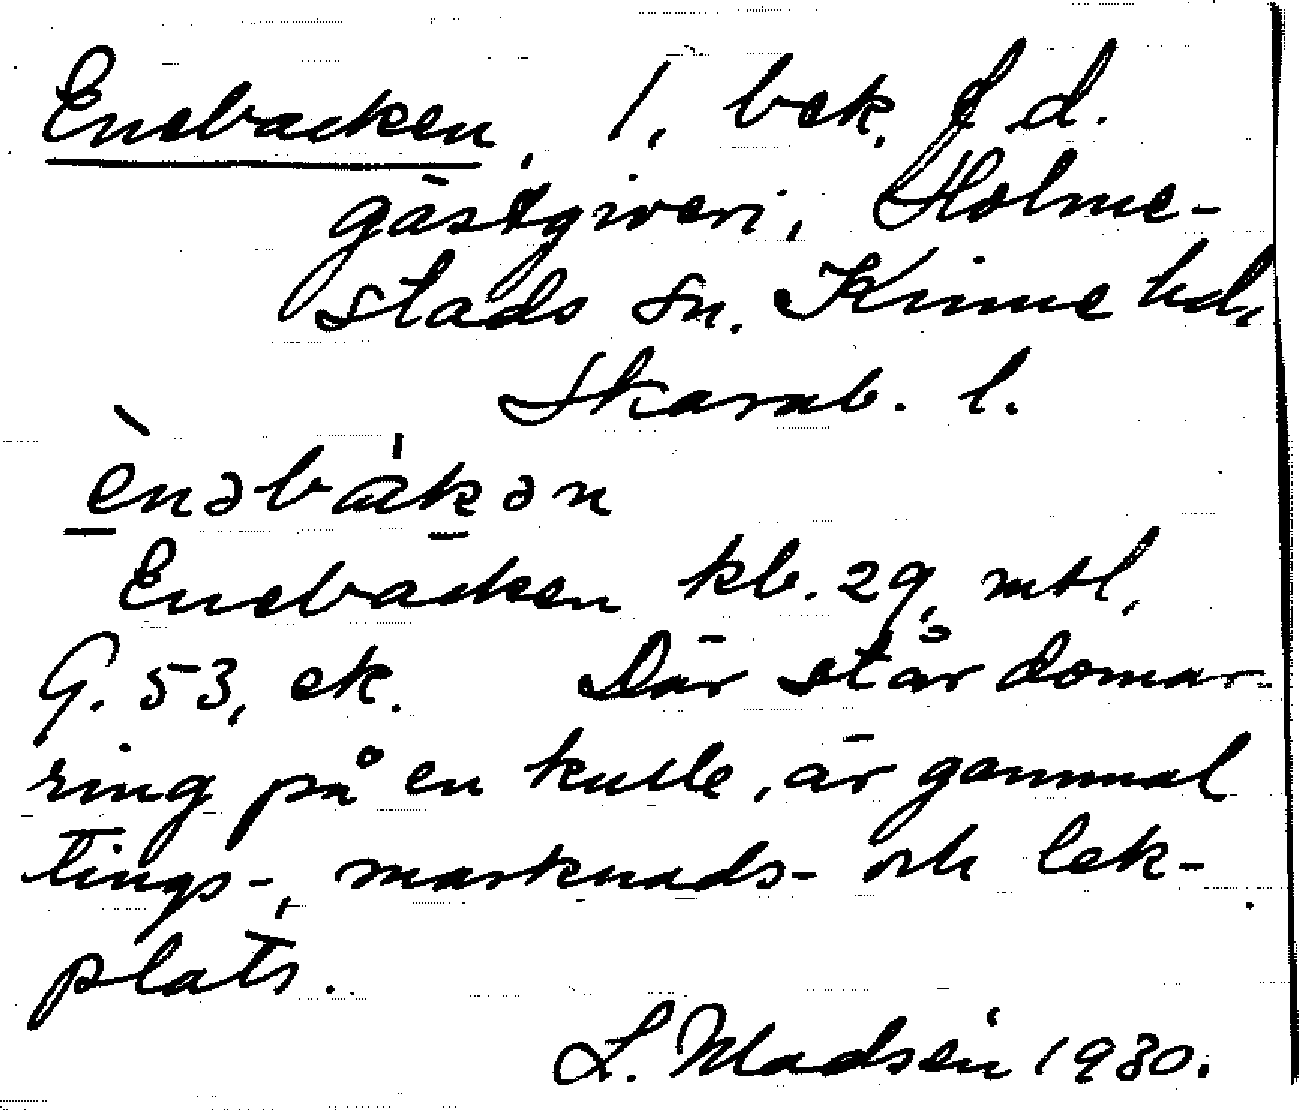 Enebacken, 1, bek. f.d.
gästgiveri, Holme-
stads sn. Kinne hd,
Skarab. l.
ènəbákən
Enebacken kb. 29, mtl,
G. 53, ek. Där står domar-
ring på en kulle, är gammal
tings-, marknads- och lek-
plats.
L. Madsén 1930.